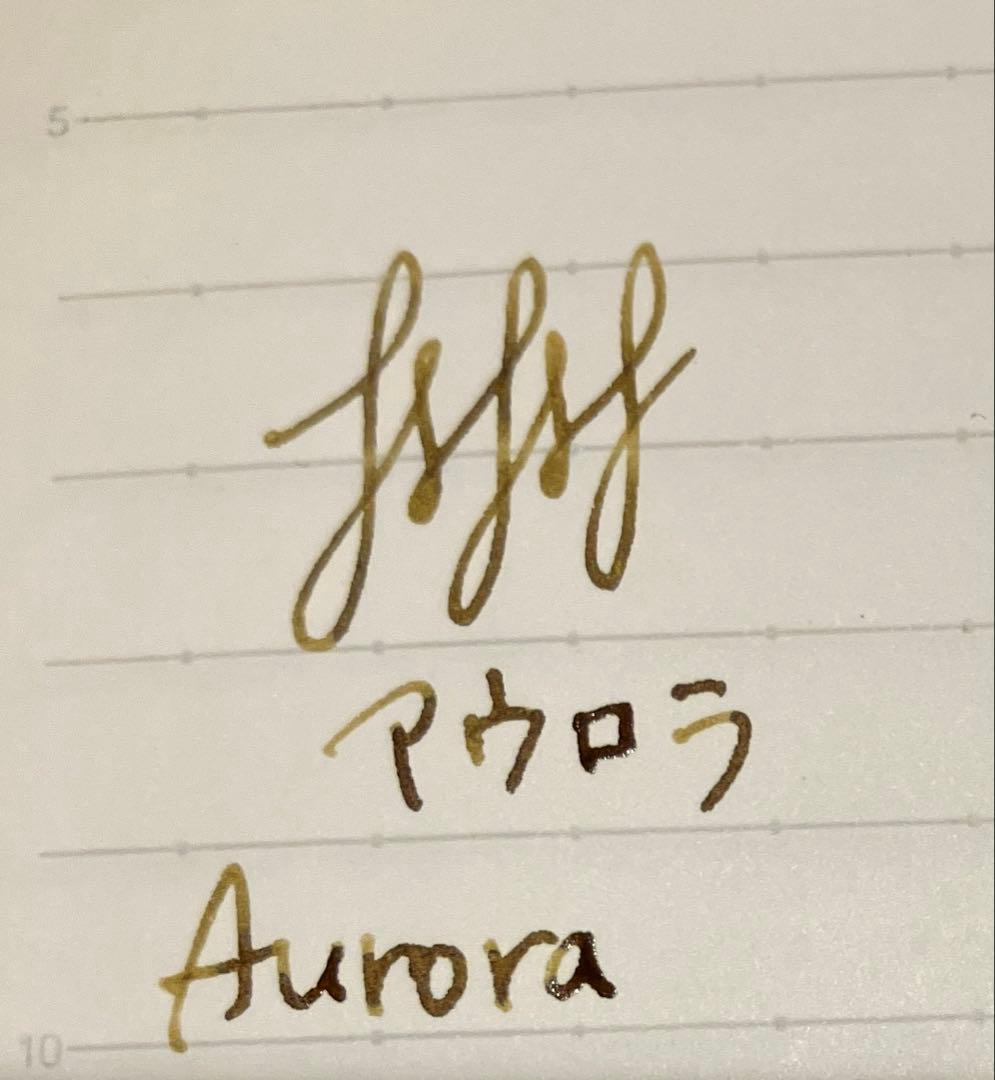 5
アウロラ
Aurora
10